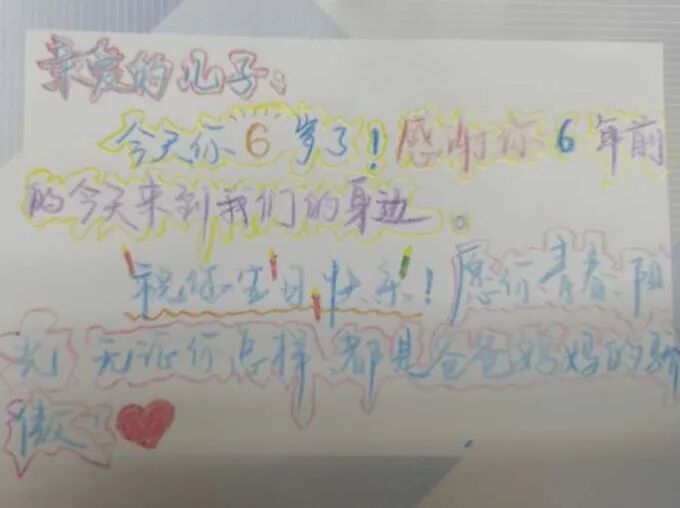 亲爱的儿子：
今天你6岁了！感谢你6年前
的今天来到我们的身边。
祝你生日快乐！愿你青春阳
光，无论你怎样都是爸爸妈妈的骄
傲！